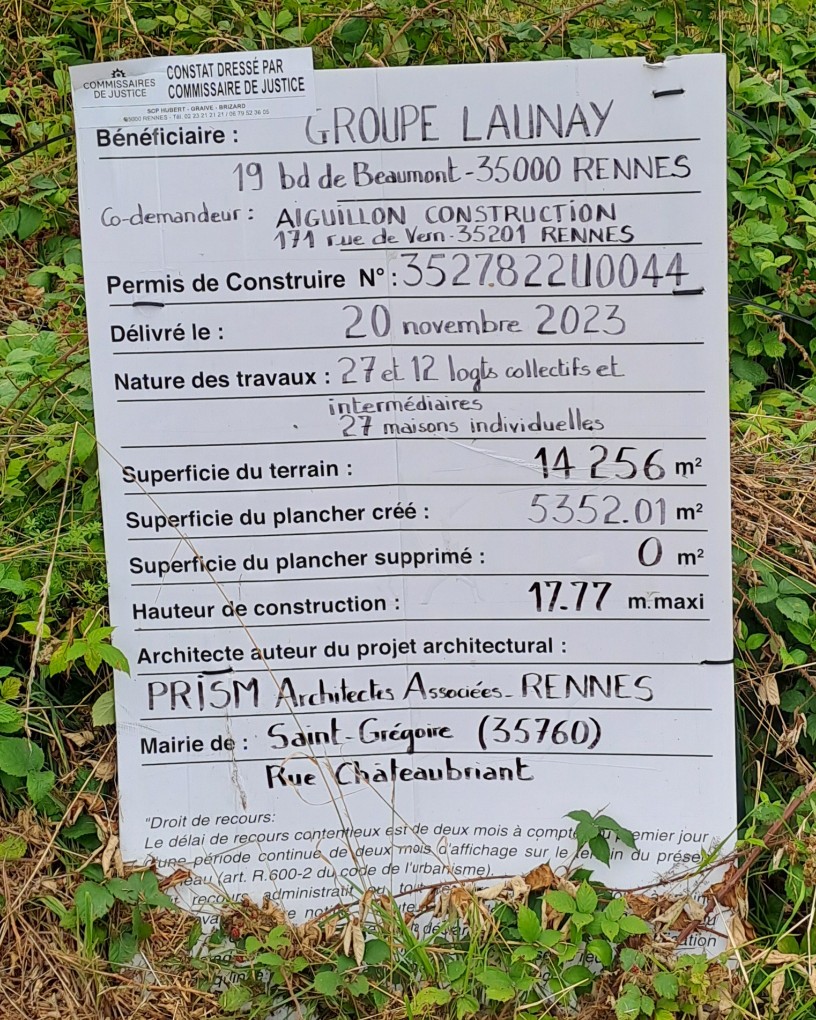 COMMISSAIRES
DE JUSTICE
CONSTAT DRESSÉ PAR
COMMISSAIRE DE JUSTICE
SCP HUBERT - GRAIVE - BRIZARD
35000 RENNES - Tél. 02 23 21 21 21 / 06 79 52 36 05
Bénéficiaire : GROUPE LAUNAY
19 bd de Beaumont - 35000 RENNES
Co-demandeur : AIGUILLON CONSTRUCTION
171 rue de Vern - 35201 RENNES
Permis de Construire N° : 3527822U0044
Délivré le : 20 novembre 2023
Nature des travaux : 27 et 12 logts collectifs et
intermédiaires
27 maisons individuelles
Superficie du terrain : 14 256 m²
Superficie du plancher créé : 5352.01 m²
Superficie du plancher supprimé : 0 m²
Hauteur de construction : 17.77 m.maxi
Architecte auteur du projet architectural :
PRISM Architectes Associées - RENNES
Mairie de : Saint-Grégoire (35760)
Rue Châteaubriant
"Droit de recours:
Le délai de recours contentieux est de deux mois à compter du premier jour
d'une période continue de deux mois d'affichage sur le terrain du
(art. R.600-2 du code de l'urbanisme).
recours administratif ou tout